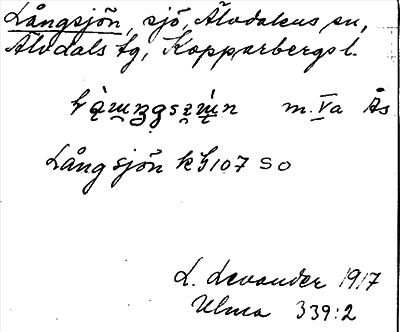 Långsjön, sjö, Älvdalens sn,
Älvdals tg, Kopparbergs l.
m. Va Ås
Långsjön kb 107 SO
L. Levander 1917
Ulma 339:2